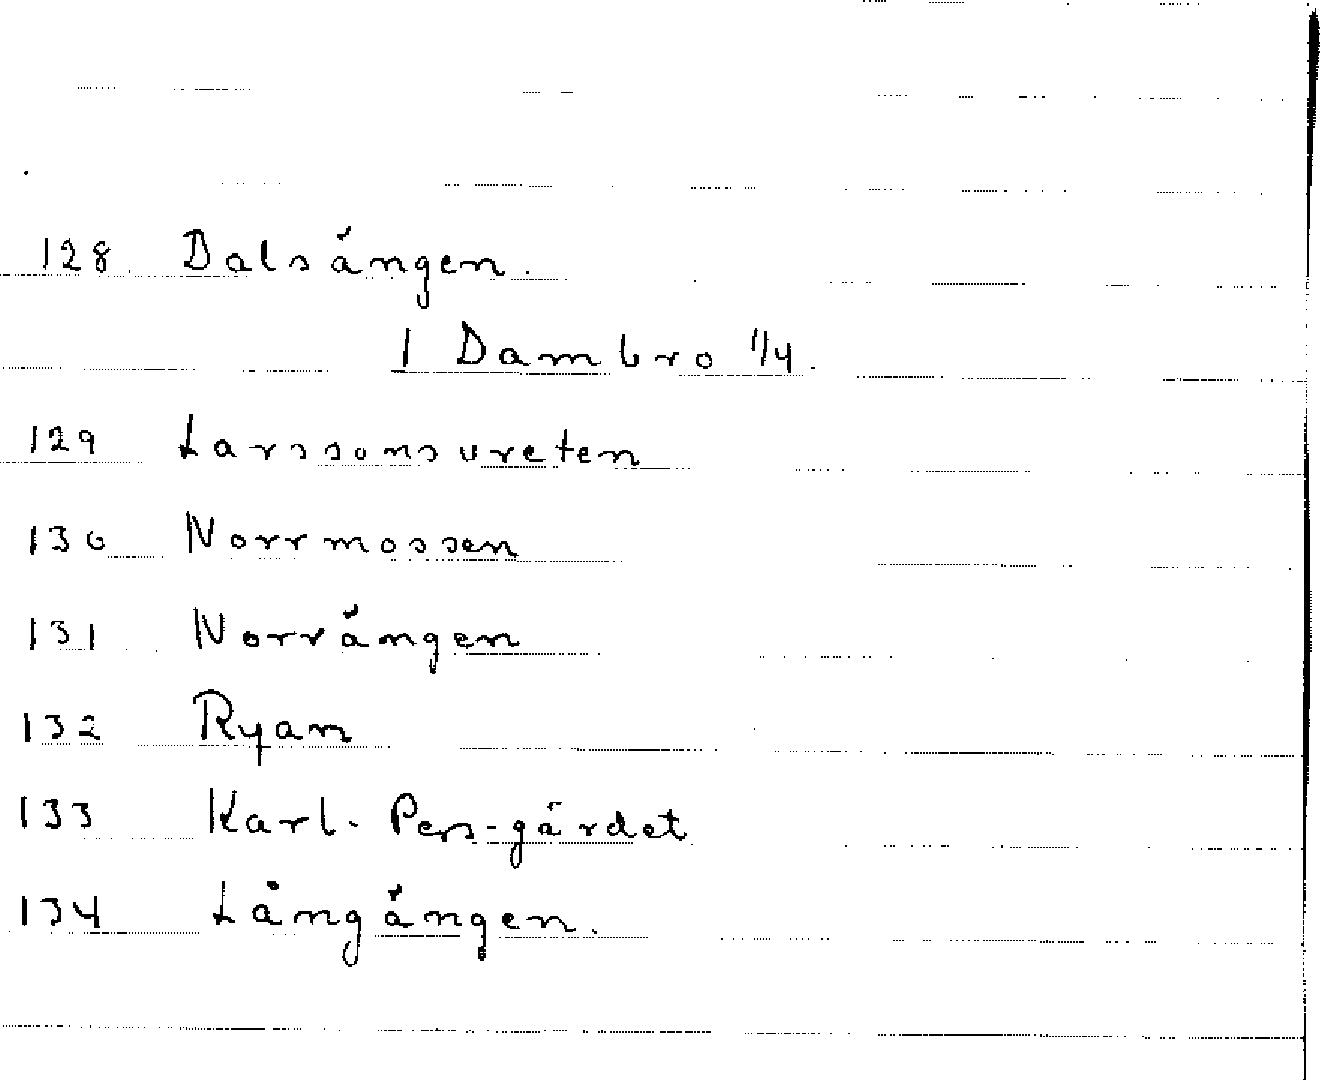 128 Dalsängen.
1 Dambro 1/4.
129 Larssonsvreten
130 Norrmossen
131 Norrängen
132 Ryam
133 Karl-Pers-gärdet
134 Långängen.